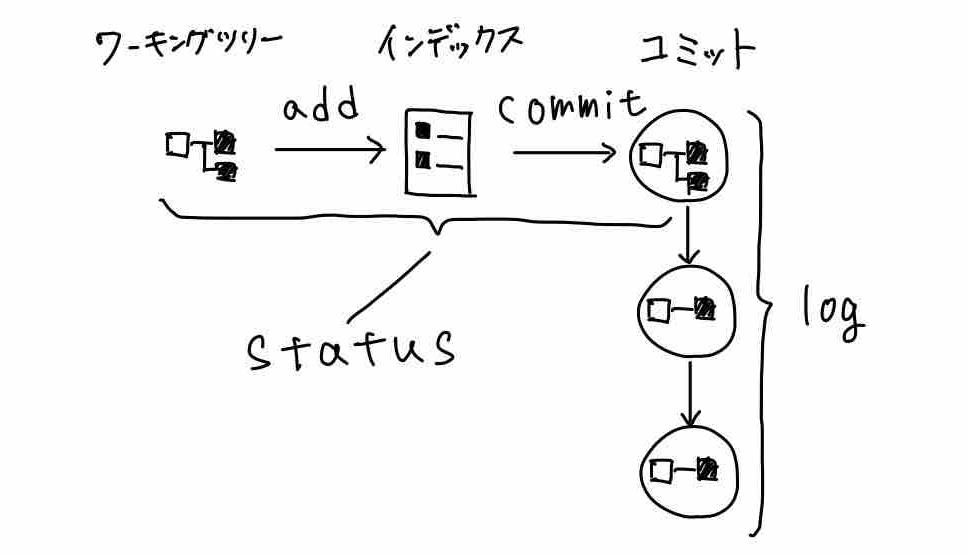 ワーキングツリー インデックス コミット
add commit
status
log